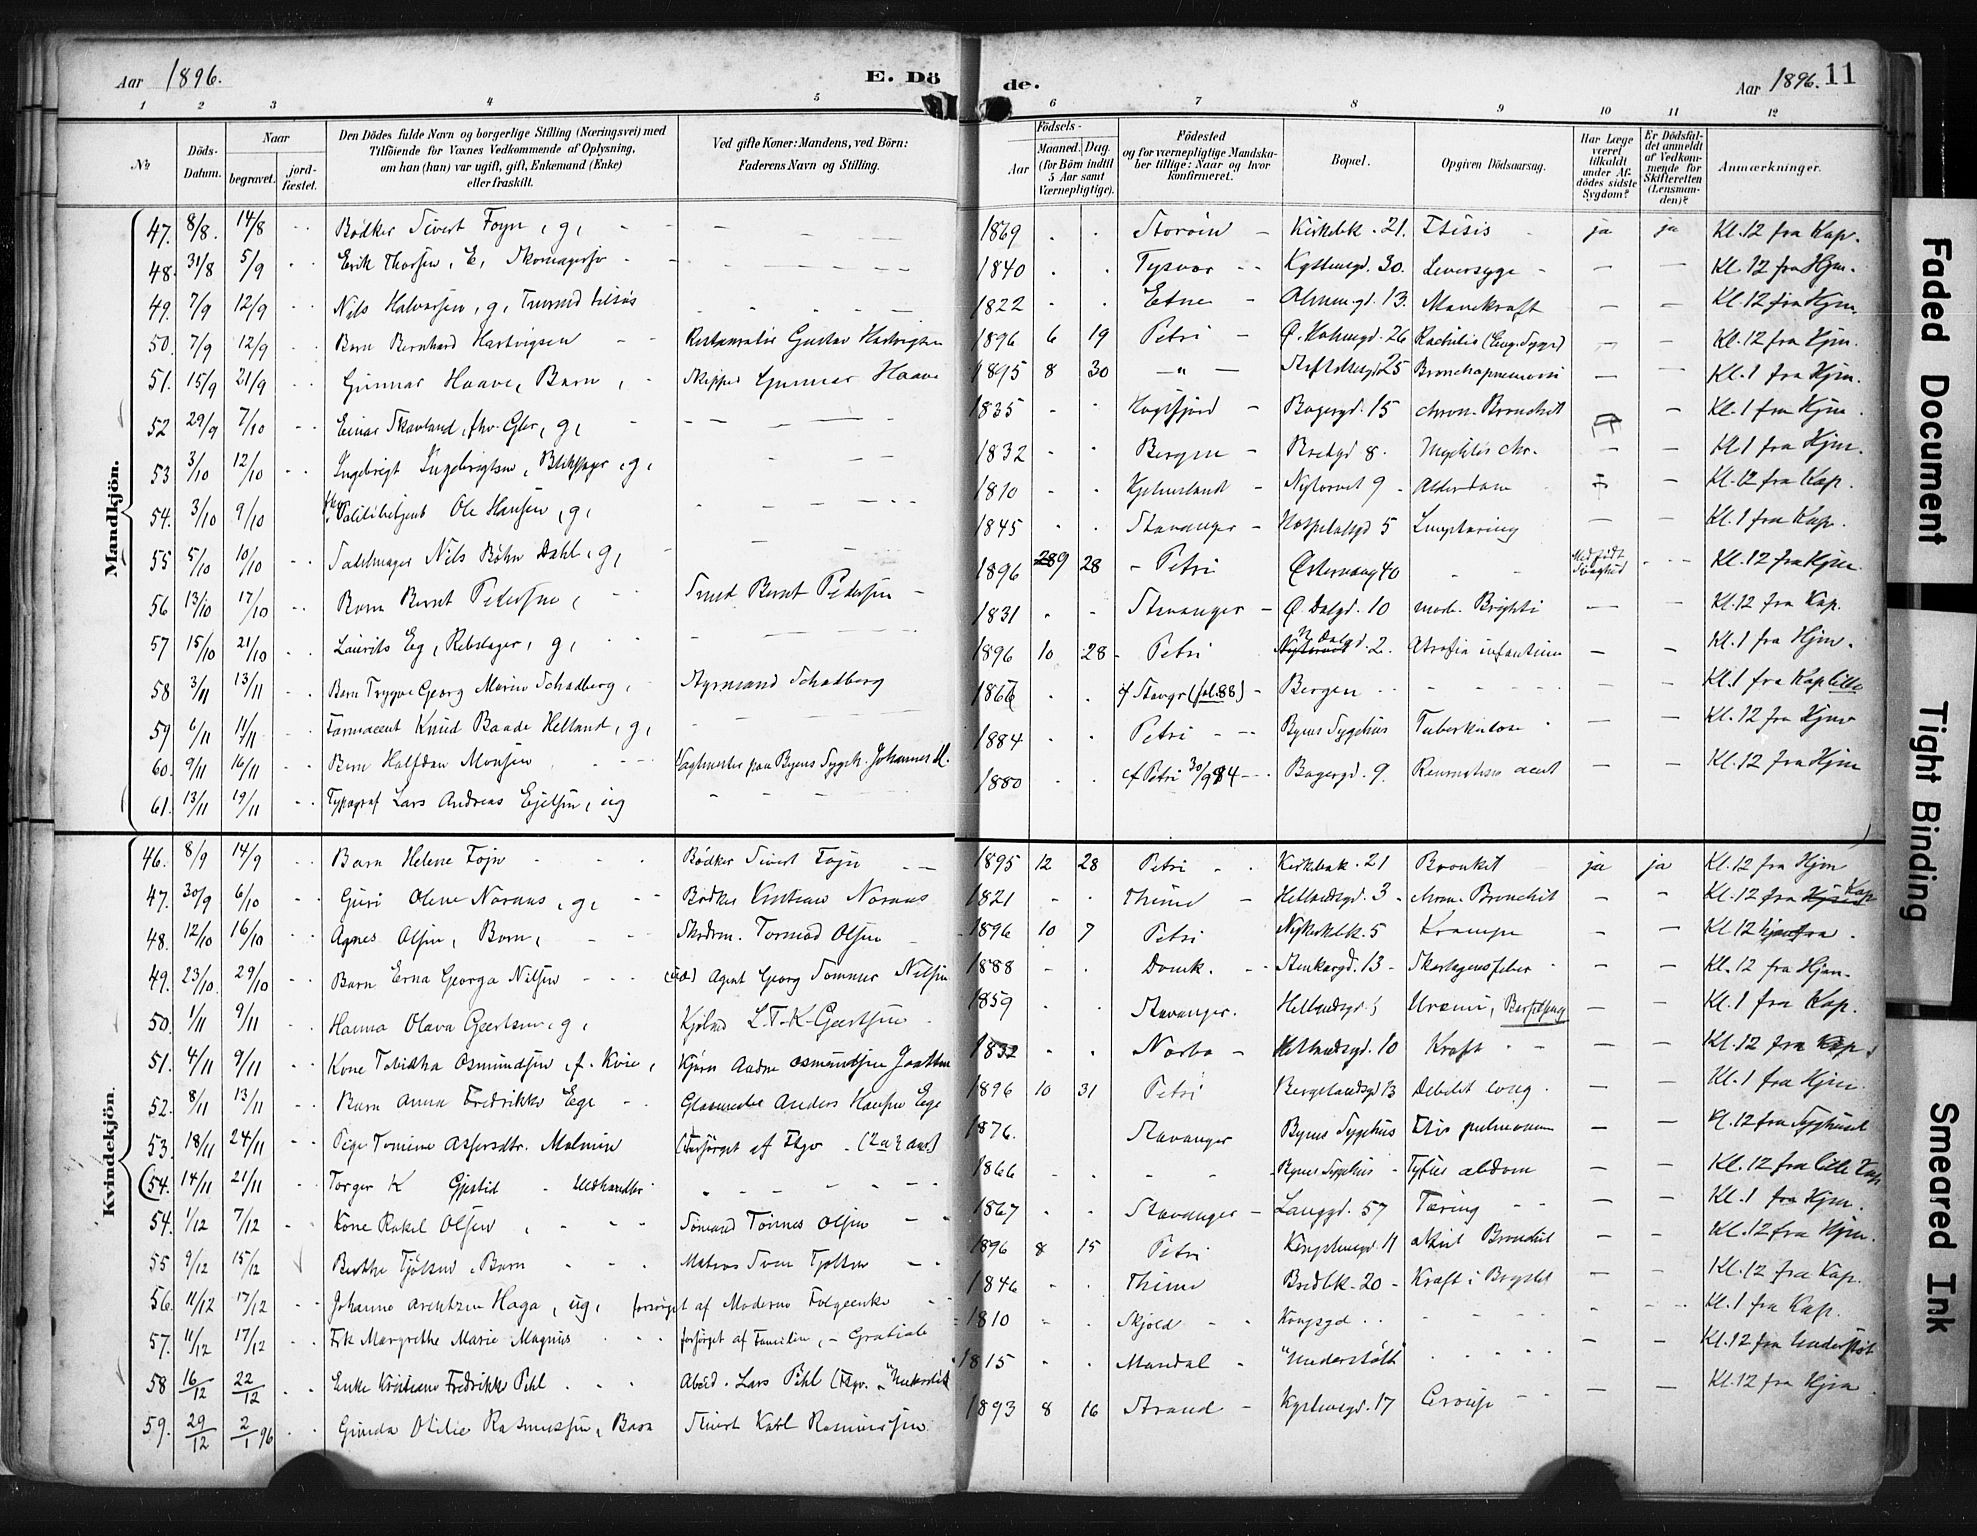 Aar 1896.
E. Dö
de.
Aar 1896. 11
1 2 3 4 5 6 7 8 9 10 11 12
№
Döds-Datum.
Naar
begravet.
jord-fæstet.
Den Dödes fulde Navn og borgerlige Stilling (Næringsvei) med
Tilföiende for Voxnes Vedkommende af Oplysning,
om han (hun) var ugift, gift, Enkemand (Enke)
eller fraskilt.
Ved gifte Koner: Mandens, ved Börn:
Faderens Navn og Stilling.
Födsels-
Aar
Maaned. Dag.
(for Börn indtil
5 Aar samt
Værnepligtige).
Födested
og for værnepligtige Mandska-
ber tillige: Naar og hvor
konfirmeret.
Bopæl.
Opgiven Dödsaarsag.
Har Læge
været
tilkaldt
under Af-
dödes sidste
Sygdom?
Er Dödsfal-
det anmeldt
af Vedkom-
mende for
Skifteretten
(Lensman-
den)?
Anmærkninger.
Mandkjön.
47. 8/8. 14/8 Bödker Sivert Foyn, g, 1869 Storöen Kirkebk. 21. Ftisis ja ja Kl. 12 fra Kap.
48. 31/8 5/9 Erik Thorsen, E, Skomagersv 1840 Tysvær 30. Leversyge Kl. 12 fra Hjm.
49. 7/9 12/9 Nils Halvorsen, g, 1822 Etne 13. Marekraft Kl. 12 fra Hjm.
50. 7/9 12/9 Barn Bernhard Hartvigsen Gustav Hartvigsen 1896 6 19 Petri Ö. Holmegd. 26 Rachitis (Eng. Syge) Kl. 12 fra Hjm.
51. 15/9 21/9 Gunnar Haave, Barn, Skipper Gunnar Haave 1895 8 30 —"— 25 Bronchopneumoni Kl. 1 fra Hjm.
52 29/9 7/10 Einar Skavland, g, 1835 Högsfjord Bagergd. 15 chron. Bronchit Kl. 1 fra Hjm.
53 3/10 12/10 Ingebrigt Ingebrigtsen, g, 1832 Bergen Bredgd 8. Myelitis chr. Kl. 1 fra Hjm.
54. 3/10 9/10 Politibetjent Ole Hansen, g, 1810 Hjelmeland Nytorvet 9 Alderdom Kl. 12 fra Kap.
55 5/10 10/10 Sadelmager Nils Böhn Dahl, g, 1845 Stavanger Hospitalsgd 5 Lungetæring Kl. 1 fra Kap.
56 13/10 17/10 Barn Bernt Pedersen, Smed Bernt Pedersen 1896 9 28 Petri Östervaag 40 Medfödt Svaghed Kl. 12 fra Hjm.
57 15/10 21/10 Laurits Eg, Rebslager, g, 1831 Stavanger Ö. Dalgd. 10 morb. Brighti Kl. 12 fra Kap.
58 3/11 13/11 Barn Trygve Georg Marin Schadberg, Styrmand Schadberg 1896 10 28 Petri N. Dalgd. 2. Atrofia infantium Kl. 1 fra Hjm.
59 6/11 11/11 Farmaceut Knud Baade Helland, g, 1866 f Stavgr (fol. 88) Bergen Kl. 1 fra Kap lille
60. 9/11 16/11 Barn Halfdan Monsen Vagtmester paa Byens Sygeh. Johannes M. 1884 Petri Byens Sygehus Tuberkulose Kl. 12 fra Hjm
61. 13/11 19/11 Typograf Lars Andreas Ejelsen, ug 1880 cf Petri 30/9 84 Bagergd. 9. Reumatisme acut Kl. 12 fra Hjm
Kvindekjön.
46. 8/9 14/9 Barn Helene Fojn Bödker Sivert Fojn 1895 12 28 Petri Kirkebak. 21 Bronkit ja ja Kl. 12 fra Hjm
47. 30/9 6/10 Guri Olene Noraas, g, Bödker Kristian Noraas 1821 Thime Hetlandsgd. 3 chron. Bronchit Kl. 12 fra Kap
48. 12/10 16/10 Agnes Olsen, Barn, Skrædrm. Tormod Olsen 1896 10 7 Petri Nykirkebk. 5 Krampe Kl 12 hjemfra.
49. 23/10 29/10 Barn Erna Georga Nilsen Agent Georg Sommer Nilsen 1888 Domk. Stenkargd. 13 Skarlagensfeber Kl. 12 fra Hjm.
50. 1/11 9/11 Hanna Olava Geertsen, g, L. T. K. Geertsen 1859 Stavanger. Hetlandsgd. 5 Uræmi, Barselseng Kl. 1 fra Kap.
51. 4/11 9/11 Kone Tabitha Osmundsen, f. Kvie, Andne Osmundsen Jaatten 1832 Norbo Hetlandsgd. 10 Kræft Kl. 12 fra Kap
52. 8/11 13/11 Barn Anna Fredrikke Ege Glasmester Anders Hansen Ege 1896 10 31 Petri Bergelandsgd 13 Debilit. cong. Kl. 1 fra Hjm.
53. 18/11 24/11 Pige Tomine Asfersdtr. Malmin (Forsörget af Ftgv. 1876. Stavanger Byens Sygehus Ftis. pulmonum Kl. 12 fra Sygehuset
(54. 14/11 21/11 Torger K Gjestid 1866 Byens Sygehus Tyfus abdom Kl. 12 fra lille Kap.
54. 1/12 7/12 Kone Rakel Olsen Sömand Tönnes Olsen 1867 Stavanger Langgd. 57 Tæring Kl. 1 fra Hjm.
55 9/12 15/12 Berthe Tjölsen, Barn Matros Sven Tjölsen 1896 8 15 Petri Kongstensgd 11 akut Bronchit Kl. 12 fra Hjm.
56. 11/12 17/12 Johanne Arentzen Haga, ug, forsörget af Moderens Folgeenke 1846 Thime Bredbk. 20 Kræft i Brystet Kl. 12 fra Kap.
57. 11/12 17/12 Frk Margrethe Marie Magnus forsörget af Familien, Gratiale 1810 Skjold Kongsgd. Kl. 1 fra Kap.
58 16/12 22/12 Enke Kristiane Fredrikke Pihl Lars Pihl (Ftgv. 1815 Mandal "Understöt" Kl. 12 fra Understöt
59. 29/12 2/1 96 Gunda Otilie Rasmussen, Barn Karl Rasmussen 1893 8 16 Strand 17 Croup Kl. 12 fra Hjm
Faded Document
Tight Binding
Smeared Ink